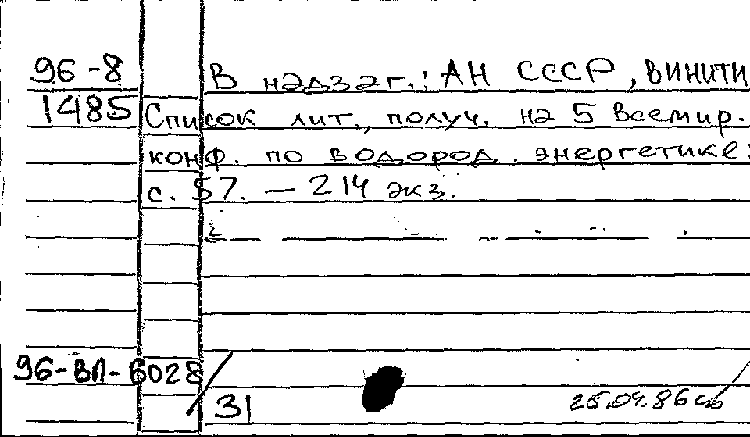 96-8 В надзаг.: АН СССР, ВИНИТИ
1485 Список лит., получ. на 5 Всемир.
конф. по водород. энергетике:
с. 57. — 214 экз.
96-ВЛ-6028/
31
25.04.86